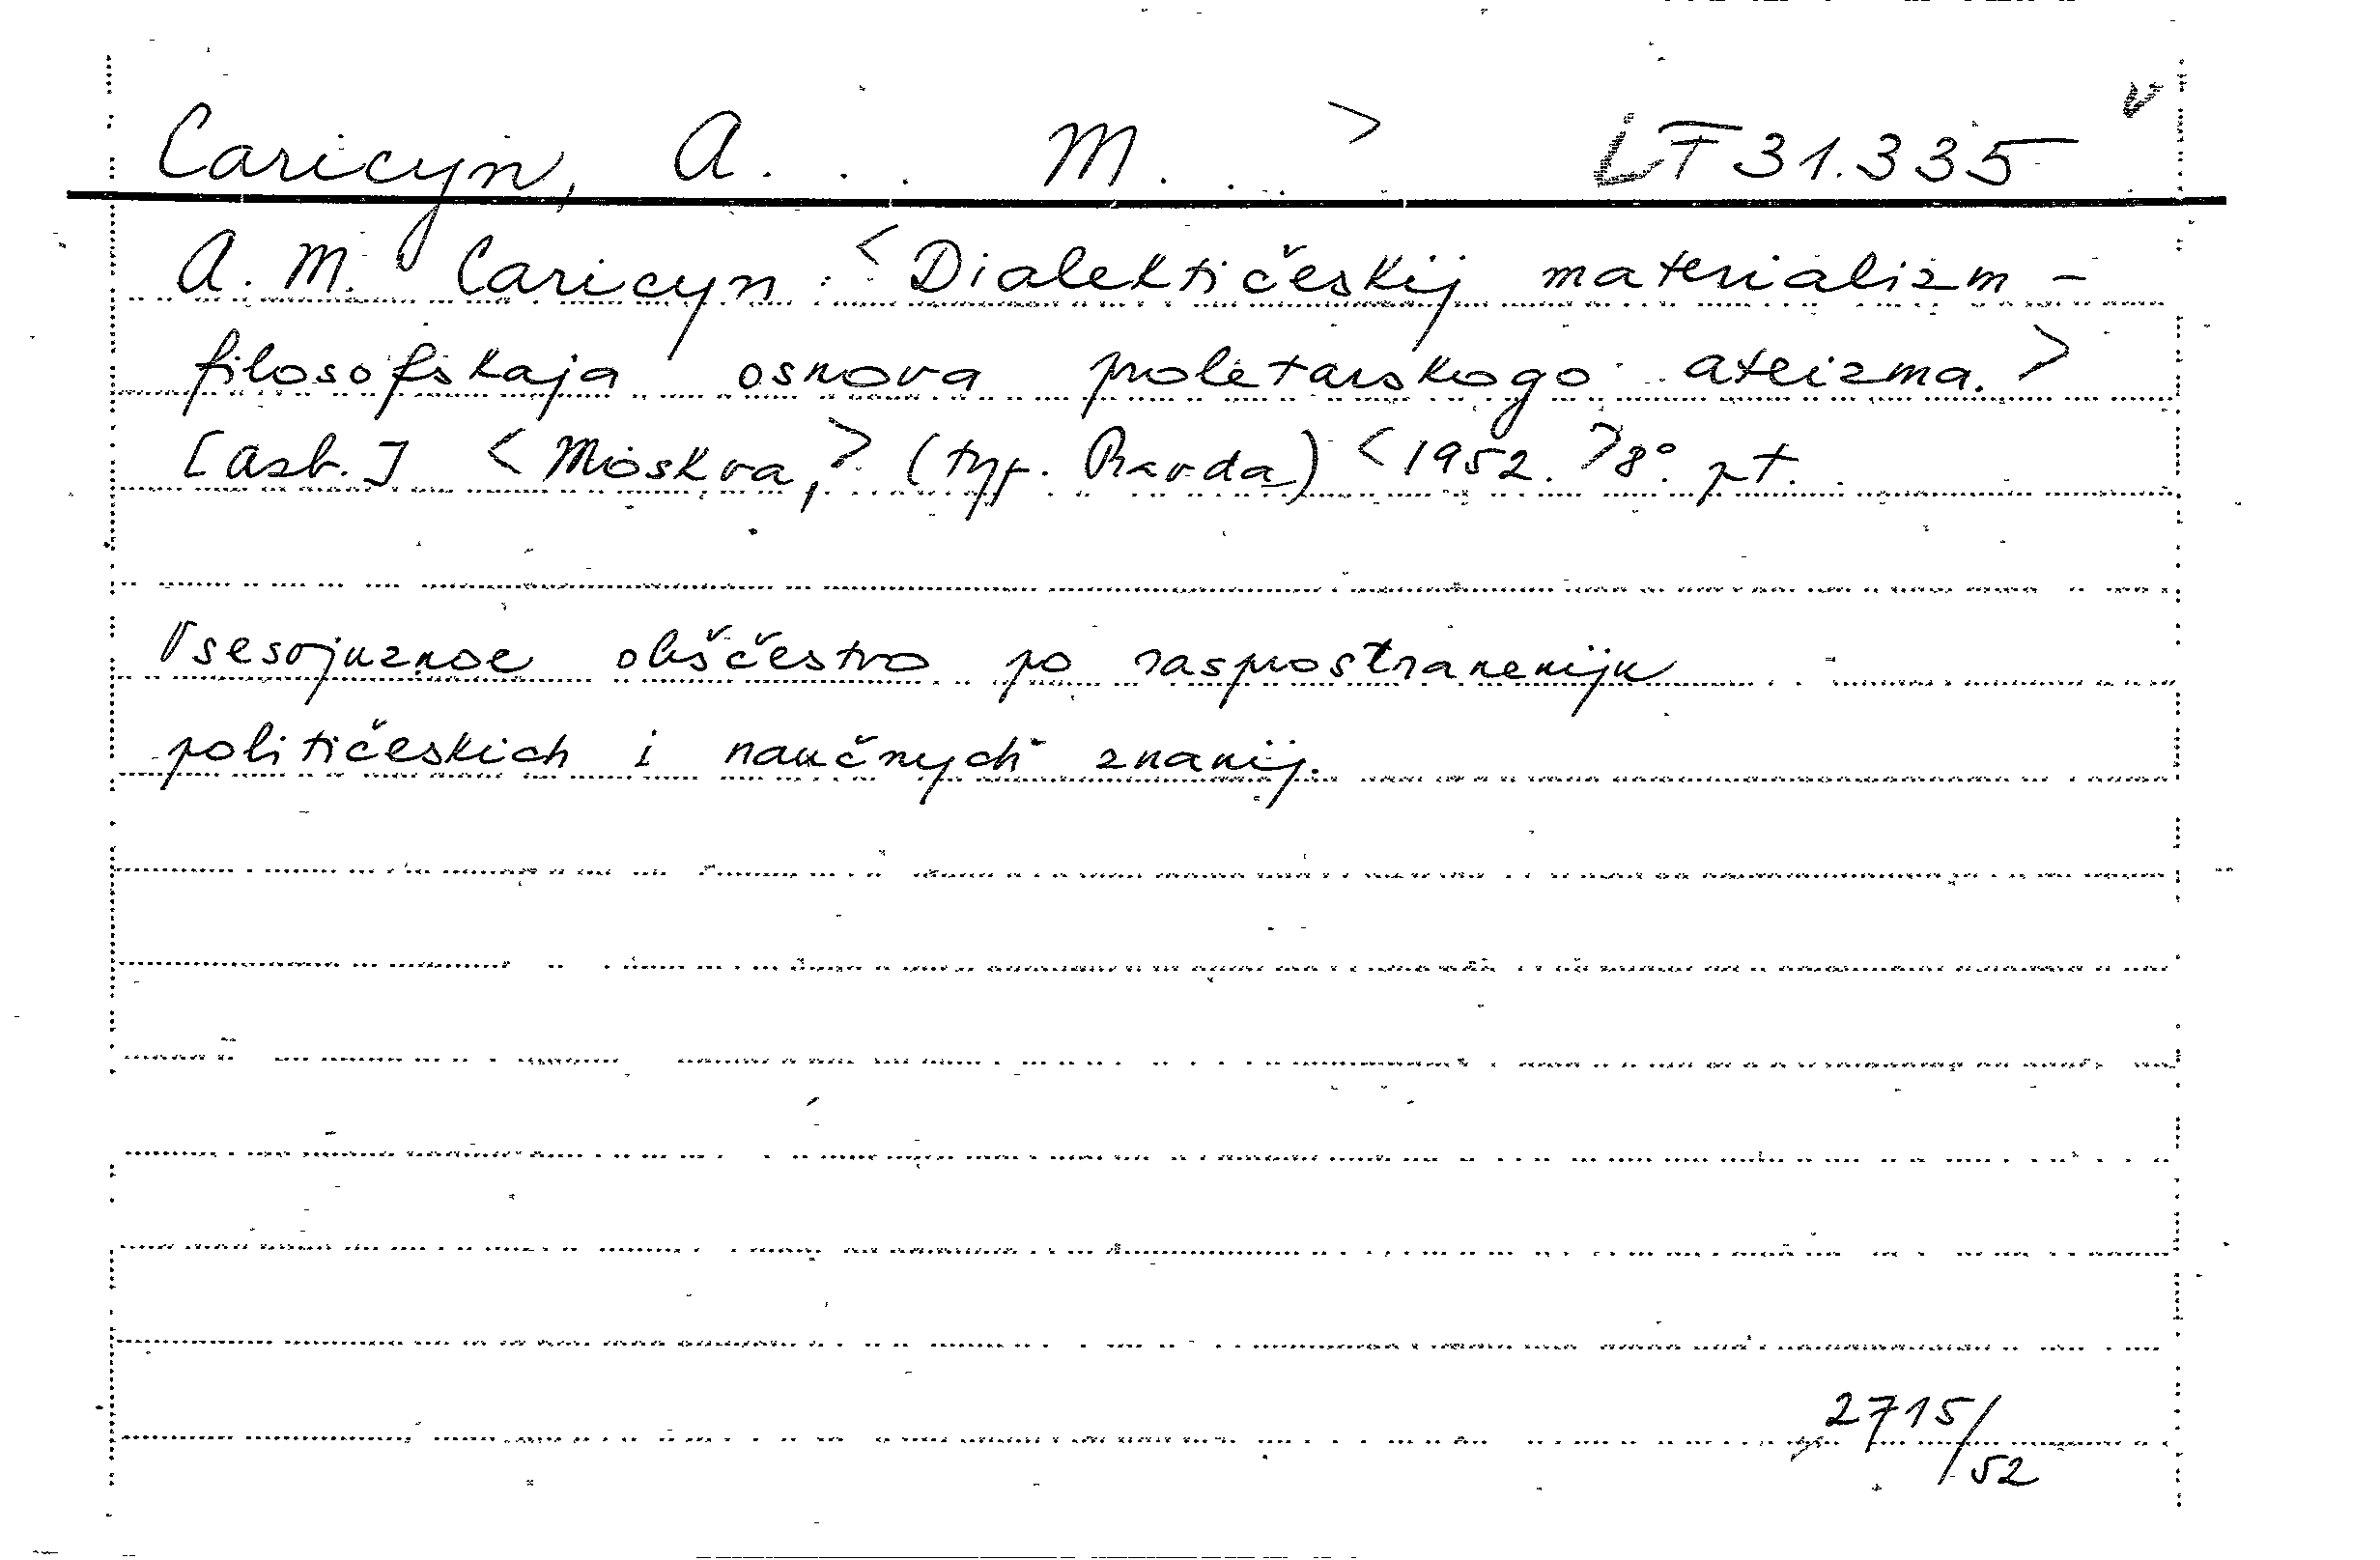 Caricyn, A. . . M. . . . > LT 31.335 v
A. M. Caricyn : <Dialektičeskij materializm -
filosofskaja osnova proletarskogo ateizma.>
[Azb.] <Moskva,> (typ. Pravda) <1952.> 8°. pt.
Vsesojuznoe obščestvo po rasprostraneniju
političeskich i naučnych znanij.
2715/
52